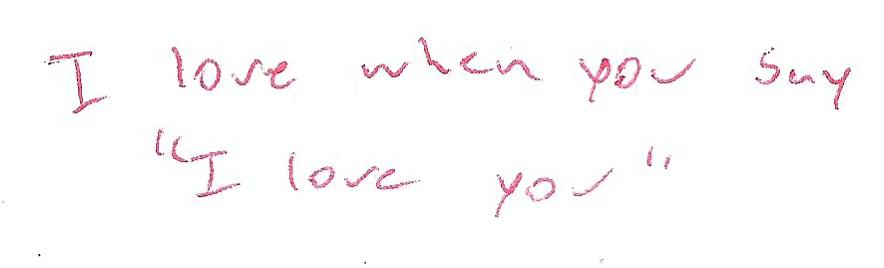 I love when you say
"I love you"